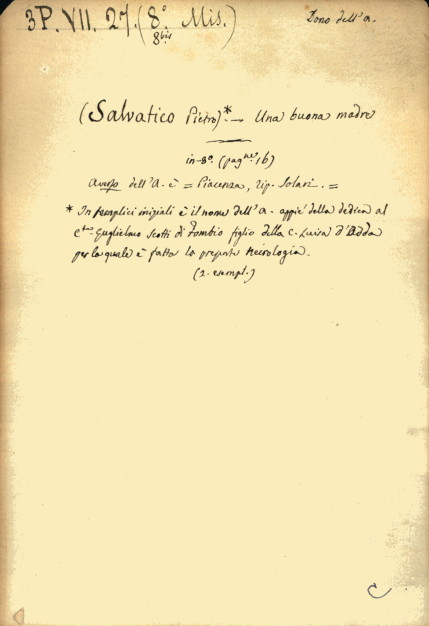 3P. VII. 27. (8.° Mis.)
8bis
Dono dell'a.
(Salvatico Pietro)* — Una buona madre
in-8.° (pagne 16)
dell'A. è = Piacenza, tip. Solari. =
* In semplici iniziali è il nome dell'a. appiè della dedica al
Cte Guglielmo Scotti di Fombio figlio della C. Luisa d'Adda
per la quale è fatta la presente Necrologia.
(2. esempl.)
C